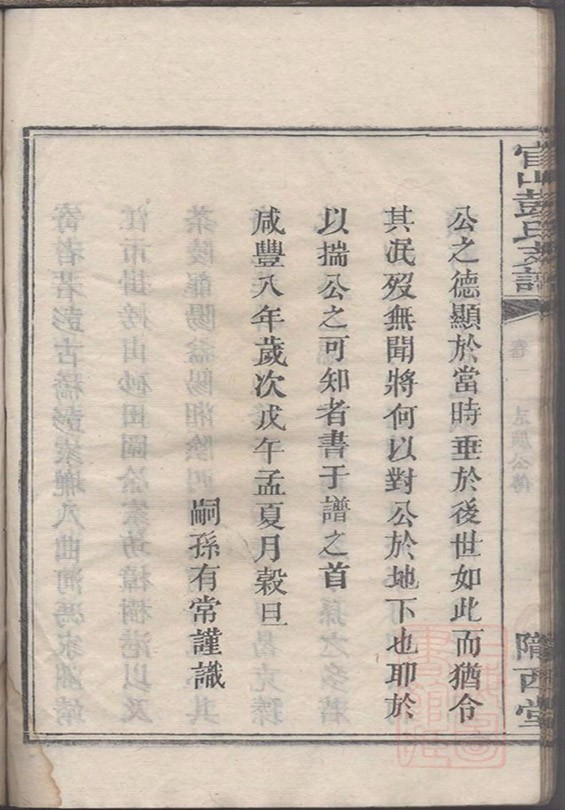 官山彭氏支譜
卷一
公傳
隴西堂
公之德顯於當時垂於後世如此而猶令
其泯歿無聞將何以對公於地下也耶於
以揣公之可知者書于譜之首
咸豐八年歲次戊午孟夏月穀旦
嗣孫有常謹識